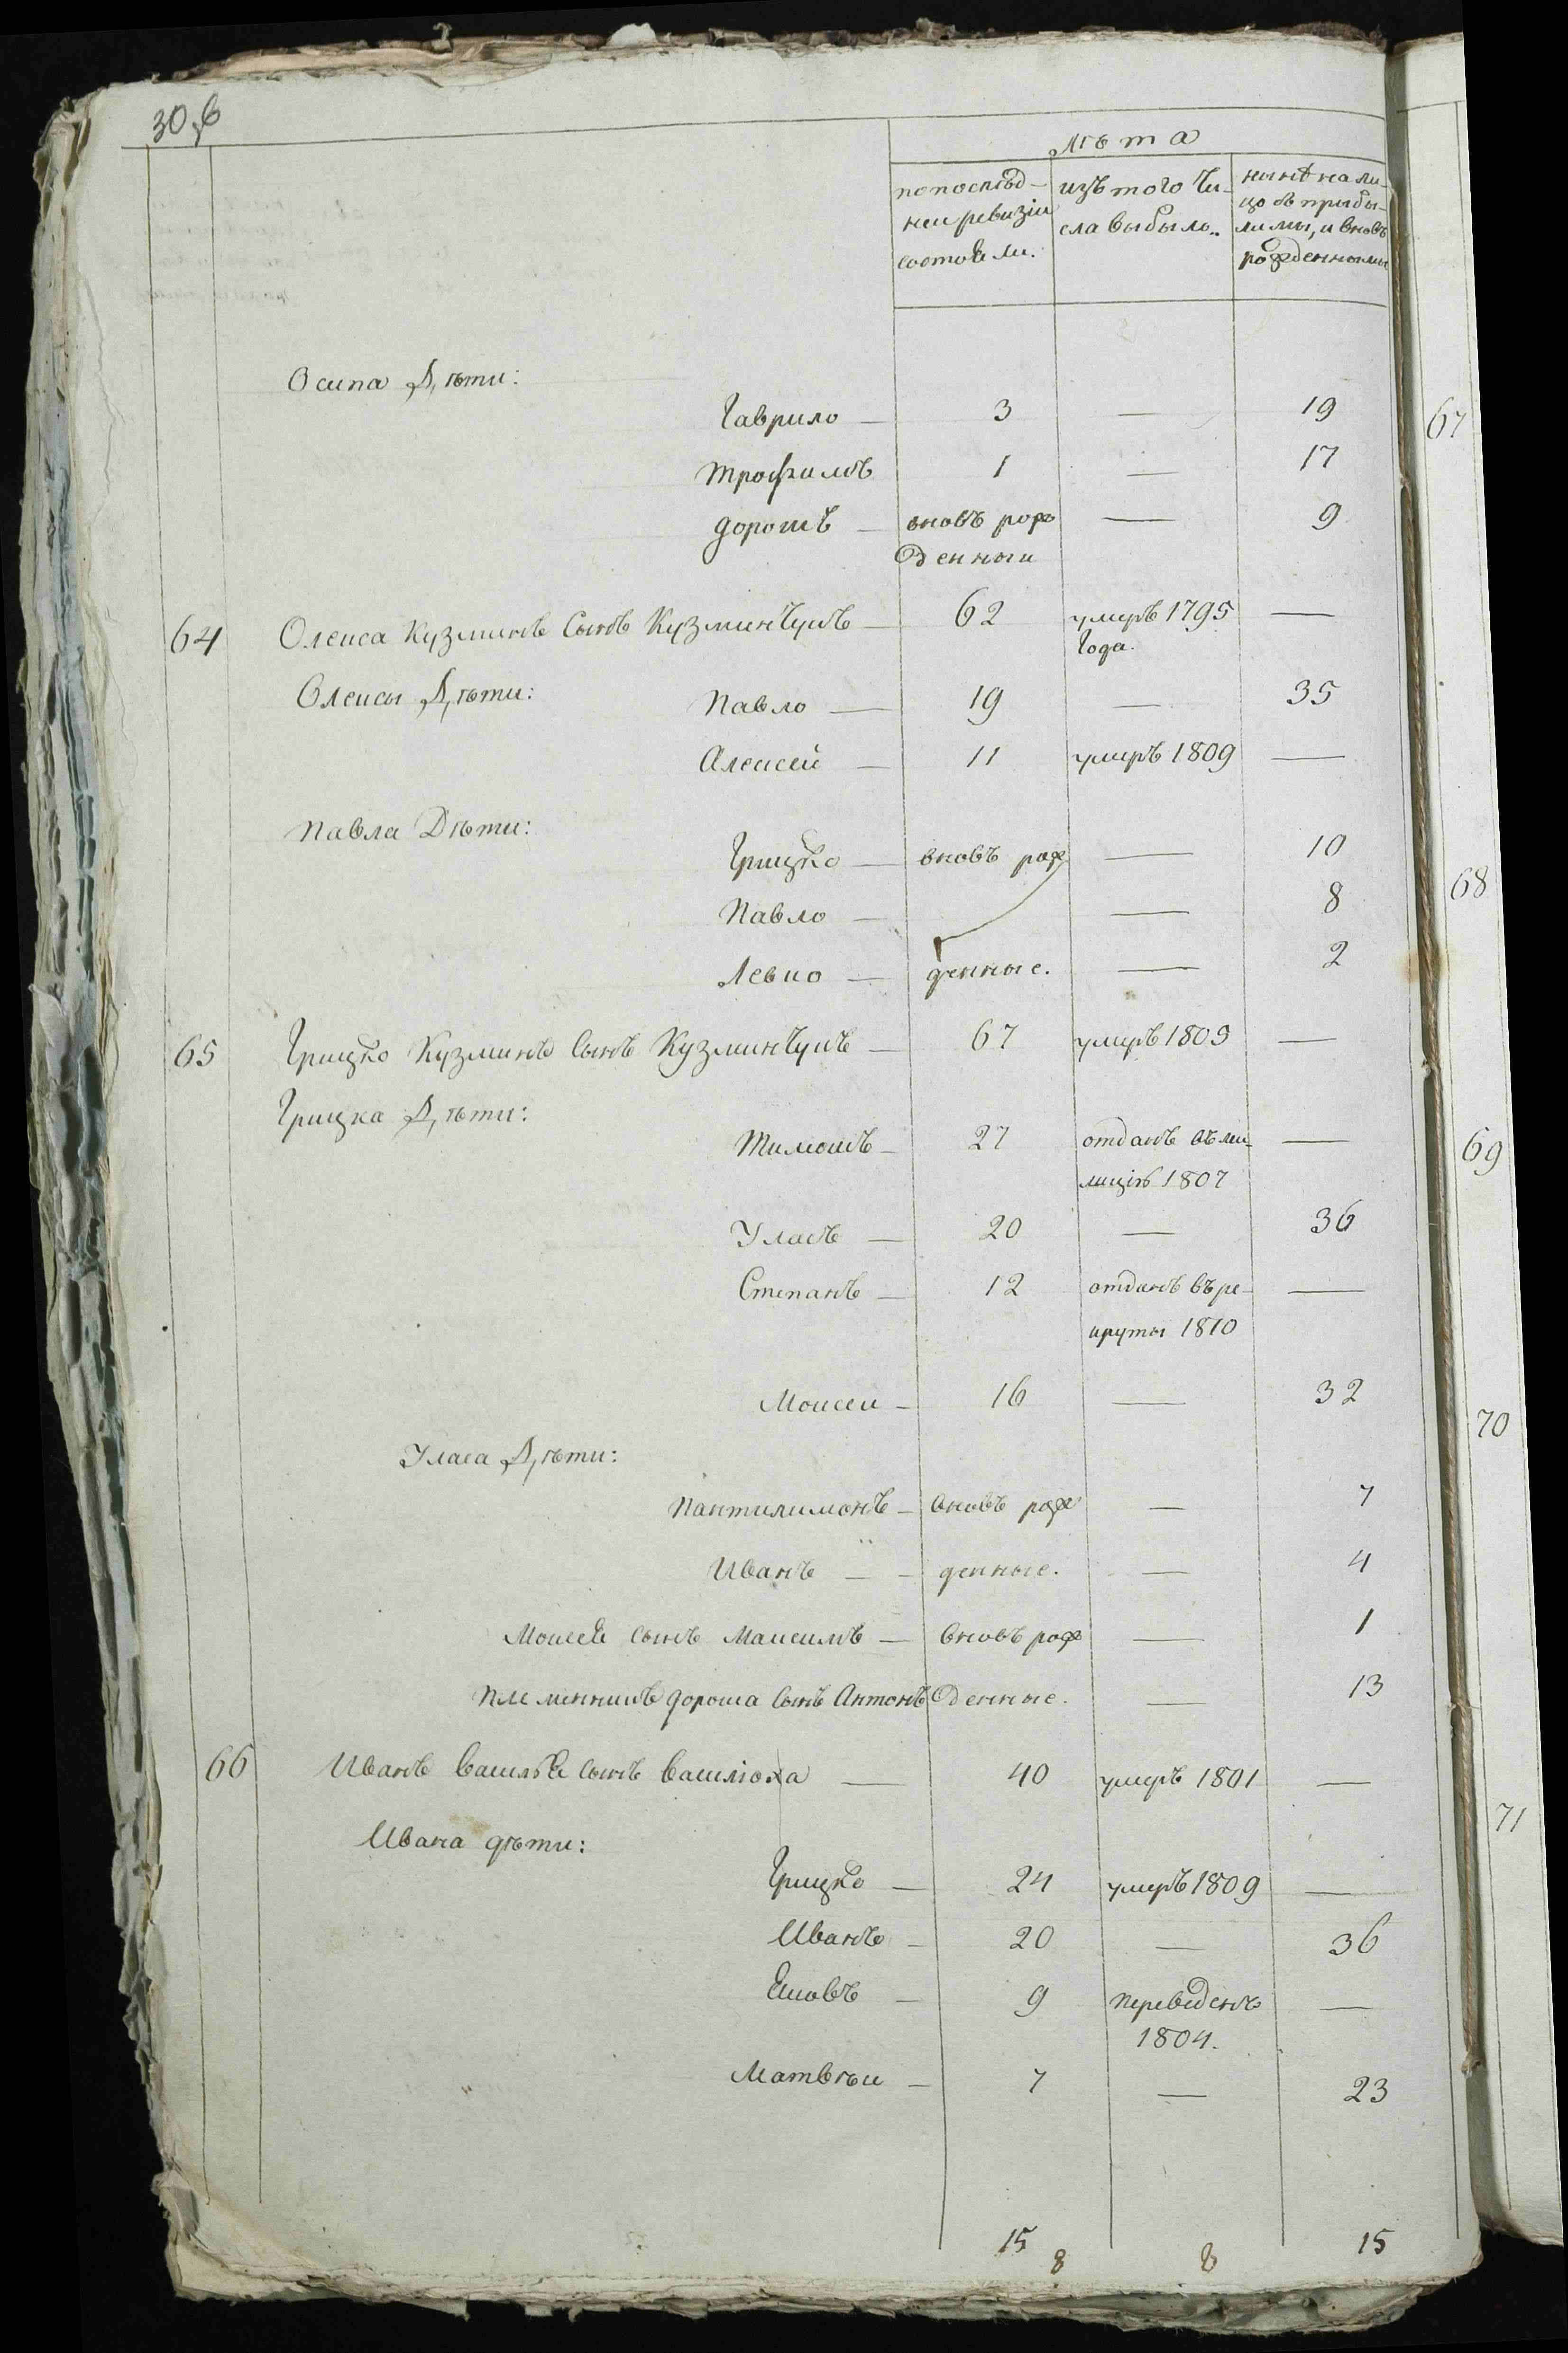 30,б
Лѣта
попослѣд- изъ того чи- нынѣ на ли-
неи ревизіи сла выбыло.. цо съ прибы-
состояли. лими, и вновь
рожденными
Осипа Дѣти:
Гаврило — 3 — 19
Трофимъ 1 — 17
Дорошъ — вновь рож — 9
денныи
64 Олекса Кузминъ Сынъ Кузминчукъ — 62 умеръ 1795 —
года.
Олексы Дѣти: Павло — 19 — 35
Алексей — 11 умеръ 1809 —
Павла Дѣти:
Грицко — вновь рож — 10
Павло — — 8
Левко — денные. — 2
65 Грицко Кузминъ Сынъ Кузминчукъ — 67 умеръ 1809 —
Грицка Дѣти:
Тимошъ — 27 отданъ въ ми- —
лицію 1807
Уласъ — 20 — 36
Степанъ — 12 отданъ въ ре- —
круты 1810
Моисеи — 16 — 32
Уласа Дѣти:
Пантилимонъ — вновь рож — 7
Иванъ — — денные. — 4
Моисея сынъ Максимъ — вновь рож — 1
Племенникъ Дороша Сынъ Антонъ денные. — 13
66 Иванъ Васильевъ сынъ Василюха — 40 умеръ 1801 —
Ивана дѣти:
Грицко — 24 умеръ 1809 —
Иванъ — 20 — 36
Яковъ — 9 переведенъ —
1804.
Матвѣи — 7 — 23
15 8 8 15
67
68
69
70
71